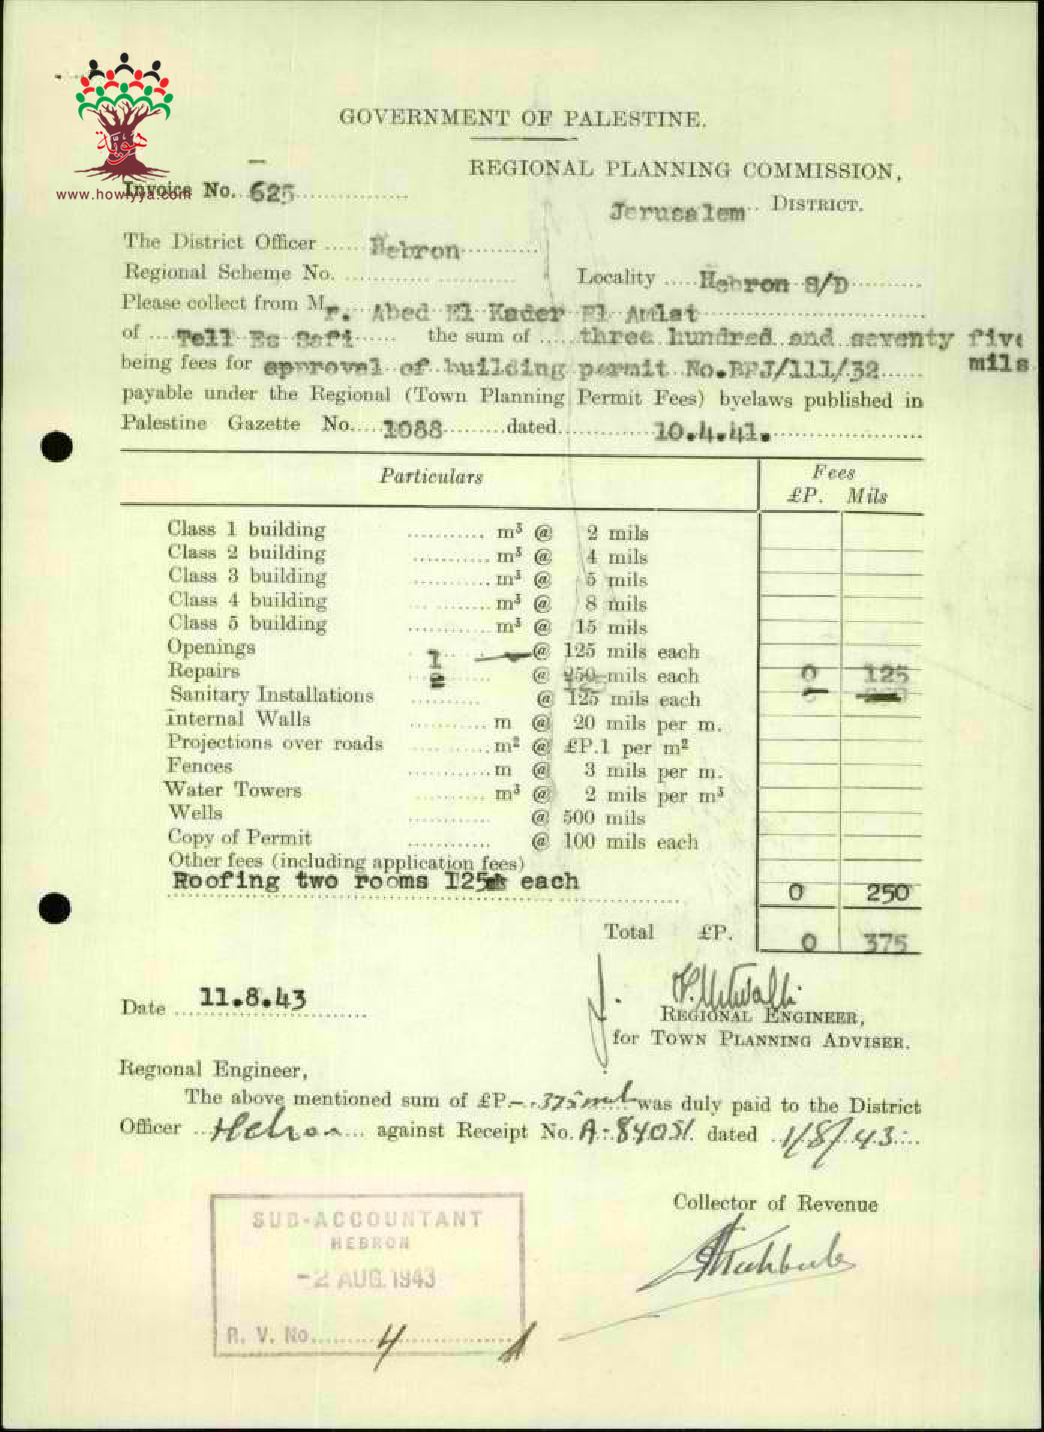 GOVERNMENT OF PALESTINE.
هوية
www.howiyya.com
REGIONAL PLANNING COMMISSION,
Invoice No. 625
Jerusalem DISTRICT.
The District Officer Hebron
Regional Scheme No. Locality Hebron S/D
Please collect from Mr. Abed El Kader El
of Tell Es Safi the sum of three hundred and seventy five
being fees for approval of building permit No.BPJ/111/32 mils
payable under the Regional (Town Planning Permit Fees) byelaws published in
Palestine Gazette No. 1088 dated 10.4.41.
Particulars Fees
£P. Mils
Class 1 building m³ @ 2 mils
Class 2 building m³ @ 4 mils
Class 3 building m³ @ 5 mils
Class 4 building m³ @ 8 mils
Class 5 building m³ @ 15 mils
Openings 1 @ 125 mils each
Repairs 2 @ 250 mils each 0 125
125
Sanitary Installations @ 125 mils each
Internal Walls m @ 20 mils per m.
Projections over roads m² @ £P.1 per m²
Fences m @ 3 mils per m.
Water Towers m³ @ 2 mils per m³
Wells @ 500 mils
Copy of Permit @ 100 mils each
Other fees (including application fees)
Roofing two rooms 125 each 0 250
Total £P. 0 375
Date 11.8.43
REGIONAL ENGINEER,
for TOWN PLANNING ADVISER.
Regional Engineer,
The above mentioned sum of £P-.375 mils was duly paid to the District
Officer Hebron against Receipt No. A-84051 dated 1/8/43
Collector of Revenue
SUB-ACCOUNTANT
HEBRON
-2 AUG.1943
R. V. No. 4